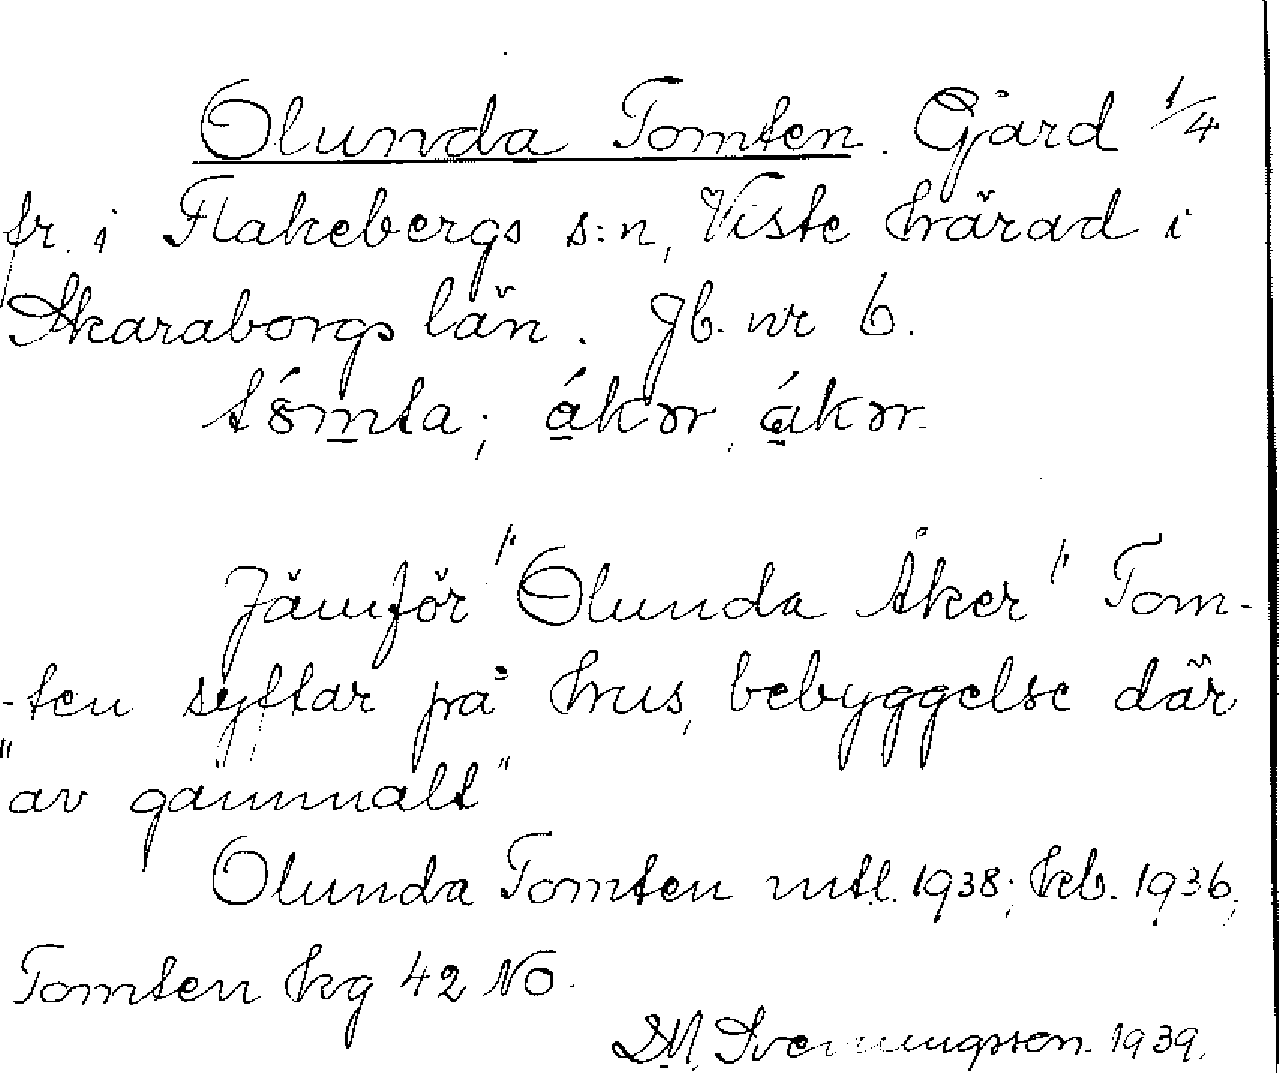 Olunda Tomten. Gård 1/4
fr. i Flakebergs s:n, Viste härad i
Skaraborgs län. Jb. nr 6.
tómta; ákər, ákər.
Jämför "Olunda Åker" Tom-
-ten syftar på hus, bebyggelse där
"av gammalt"
Olunda Tomten mtl. 1938; kb. 1936,
Tomten hkg 42 NO.
D.M. Svenningsson. 1939.